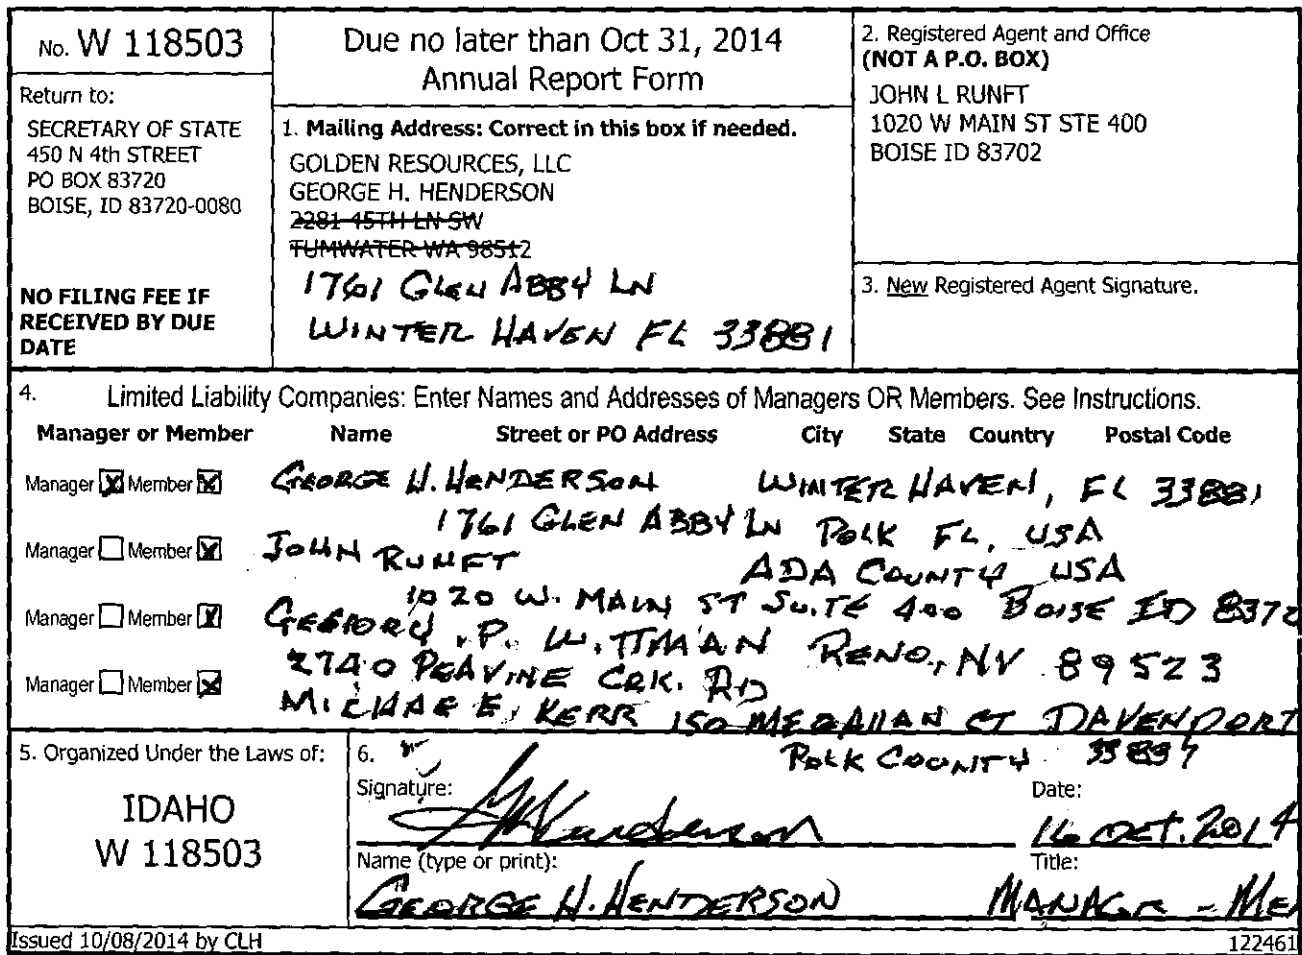 No. W 118503
Return to:
SECRETARY OF STATE
450 N 4th STREET
PO BOX 83720
BOISE, ID 83720-0080
NO FILING FEE IF
RECEIVED BY DUE
DATE
Due no later than Oct 31, 2014
Annual Report Form
1. Mailing Address: Correct in this box if needed.
GOLDEN RESOURCES, LLC
GEORGE H. HENDERSON
2281 45TH LN SW
TUMWATER WA 98512
1761 GLEN ABBY LN
WINTER HAVEN FL 33881
2. Registered Agent and Office
(NOT A P.O. BOX)
JOHN L RUNFT
1020 W MAIN ST STE 400
BOISE ID 83702
3. New Registered Agent Signature.
4. Limited Liability Companies: Enter Names and Addresses of Managers OR Members. See Instructions.
Manager or Member Name Street or PO Address City State Country Postal Code
Manager X Member X GEORGE H. HENDERSON WINTER HAVEN, FL 33881
1761 GLEN ABBY LN POLK FL, USA
Manager Member X JOHN RUNFT ADA COUNTY USA
1020 W. MAIN ST SUITE 400 BOISE ID 8370
Manager Member X P. WITTMAN RENO, NV 89523
2740 PEAVINE CRK. RD
Manager Member X MICHAE E. KERR 150 CT DAVENPORT
POLK COUNTY 33897
5. Organized Under the Laws of:
IDAHO
W 118503
6.
Signature: GHHenderson
Date: 16 OCT. 2014
Name (type or print): GEORGE H. HENDERSON
Title: MANAGR - ME
Issued 10/08/2014 by CLH
122461